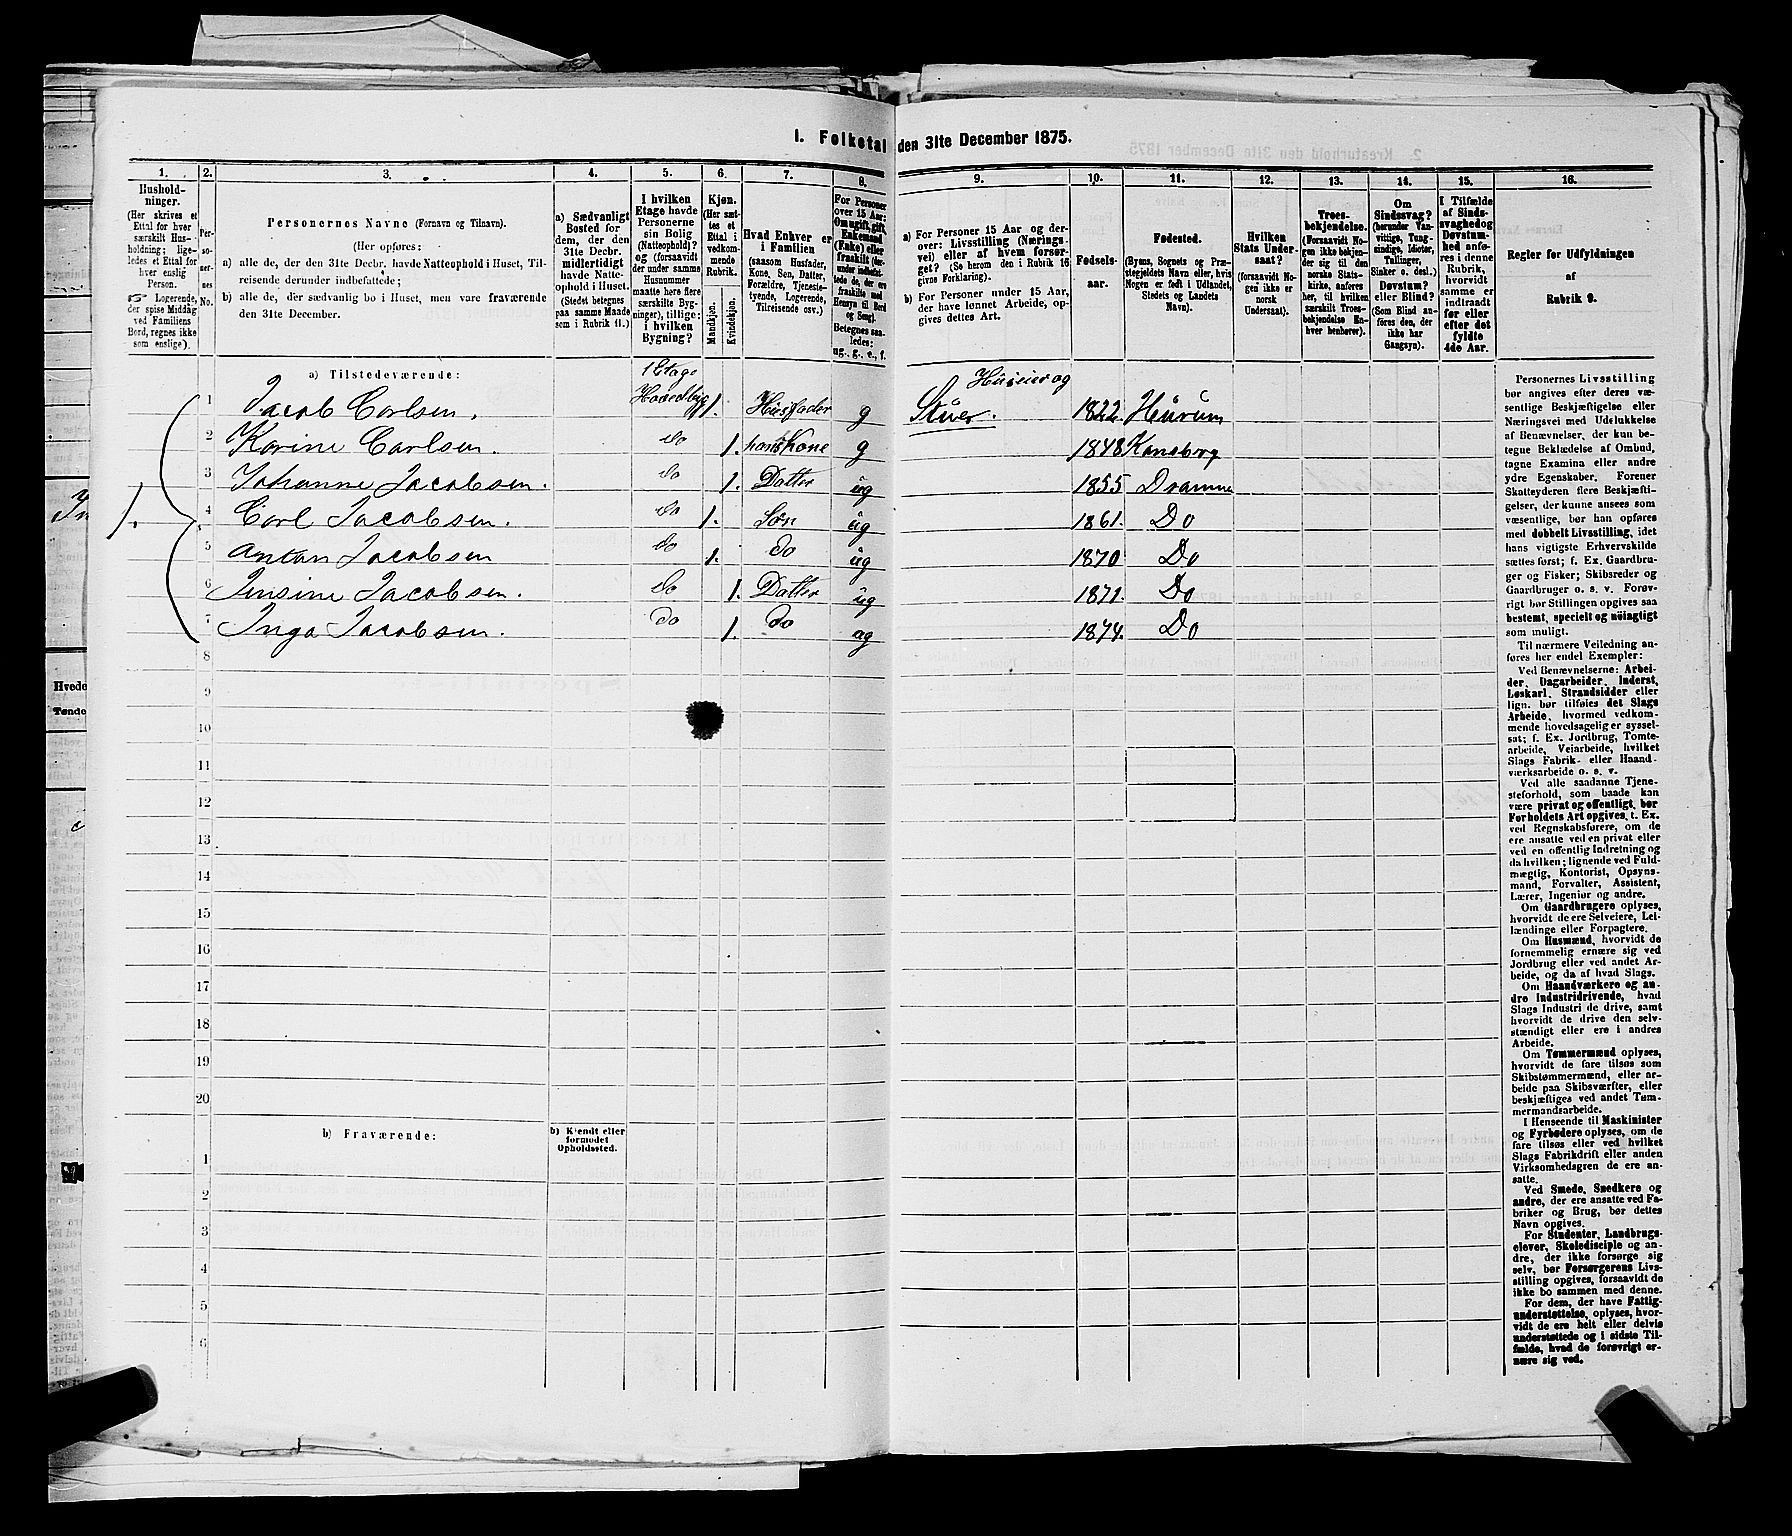 1. Folketal den 31te December 1875.
1. 2. 3. 4. 5. 6. 7. 8. 9. 10. 11. 12. 13. 14. 15. 16.
Hushold-
ninger.
(Her skrives et
Ettal for hver
særskilt Hus-
holdning; lige-
ledes et Ettal for
hver enslig
Person.
☞ Logerende,
der spise Middag
ved Familiens
Bord, regnes ikke
som enslige).
Per-
so-
ner-
nes
No.
Personernes Navne (Fornavn og Tilnavn).
(Her opføres:
a) alle de, der den 31te Decbr. havde Natteophold i Huset, Til-
reisende derunder indbefattede;
b) alle de, der sædvanlig bo i Huset, men vare fraværende
den 31te December.
a) Sædvanligt
Bosted for
dem, der den
31te Decbr.
midlertidigt
havde Natte-
ophold i Huset.
(Stedet betegnes
paa samme Maade
som i Rubrik 11.)
I hvilken
Etage havde
Personerne
sin Bolig
(Natteophold)?
og (forsaavidt
der under samme
Husnummer
maatte høre flere
særskilte Byg-
ninger), tillige:
i hvilken
Bygning?
Kjøn.
(Her sæt-
tes et
Ettal i
vedkom-
mende
Rubrik.
Mandkjøn.
Kvindekjøn.
Hvad Enhver er
i Familien
(saasom Husfader,
Kone, Søn, Datter,
Forældre, Tjeneste-
tyende, Logerende,
Tilreisende osv.)
For Personer
over 15 Aar:
Om ugift, gift,
Enkemand
(Enke) eller
fraskilt (der-
under indbefat-
tede de, der
ere fraskilte med
Hensyn til Bord
og Seng).
Betegnes saa-
ledes:
ug., g., e., f.
a) For Personer 15 Aar og der-
over: Livsstilling (Nærings-
vei) eller af hvem forsør-
get? (Se herom den i Rubrik 16
givne Forklaring).
b) For Personer under 15 Aar,
der have lønnet Arbeide, op-
gives dettes Art.
Fødsels-
aar.
Fødested.
(Byens, Sognets og Præ-
stegjeldets Navn eller, hvis
Nogen er født i Udlandet,
Stedets og Landets
Navn).
Hvilken
Stats Under-
saat?
(forsaavidt No-
gen ikke er
norsk
Undersaat).
Troes-
bekjendelse.
(Forsaavidt No-
gen ikke bekjen-
der sig til den
norske Stats-
kirke, anføres
her, til hvilken
særskilt Troes-
bekjendelse En-
hver henhører).
Om
Sindssvag?
(herunder Van-
vittige, Tung-
sindige, Idioter,
Tullinger,
Sinker o. desl.)
Døvstum?
eller Blind?
(Som Blind an-
føres den, der
ikke har
Gangsyn).
I Tilfælde
af Sinds-
svaghed og
Døvstum-
hed anfø-
res i denne
Rubrik,
hvorvidt
samme er
indtraadt
før eller
efter det
fyldte
4de Aar.
Regler for Udfyldningen
af
Rubrik 9.
a) Tilstedeværende:
1 Etage Huseier og
1 Jacob Carlsen. Hovedbyg 1. Husfader g Stuer. 1822 Hurum
2 Karine Carlsen. do 1. hans Kone g 1848 Konsberg
3 Johanne Jacobsen. do 1. Datter ug 1855 Dramme
1. 4 Carl Jacobsen. do 1. Søn ug 1861. Do
5 Anton Jacobsen do 1. do ug 1870 Do
6 Jensine Jacobsen. do 1. Datter ug 1871. Do
7 Inga Jacobsen. do 1. do ug 1874. Do
8
9
10
11
12
13
14
15
16
17
18
19
20
b) Fraværende: b) Kjendt eller
formodet
Opholdssted.
1
2
3
4
5
6
Personernes Livsstilling
bør angives efter deres væ-
sentlige Beskjæftigelse eller
Næringsvei med Udelukkelse
af Benævnelser, der kun be-
tegne Beklædelse af Ombud,
tagne Examina eller andre
ydre Egenskaber. Forener
Skatteyderen flere Beskjæfti-
gelser, der kunne ansees som
væsentlige, bør han opføres
med dobbelt Livsstilling, idet
hans vigtigste Erhvervskilde
sættes først; f. Ex. Gaardbru-
ger og Fisker; Skibsreder og
Gaardbruger o. s. v. Forøv-
rigt bør Stillingen opgives saa
bestemt, specielt og nöiagtigt
som muligt.
Til nærmere Veiledning an-
føres her endel Exempler:
Ved Benævnelserne: Arbei-
der, Dagarbeider, Inderst,
Løskarl, Strandsidder eller
lign. bør tilføies det Slags
Arbeide, hvormed vedkom-
mende hovedsagelig er syssel-
sat; f. Ex. Jordbrug, Tomte-
arbeide, Veiarbeide, hvilket
Slags Fabrik- eller Haand-
værksarbeide o. s. v.
Ved alle saadanne Tjene-
steforhold, som baade kan
være privat og offentligt, bør
Forholdets Art opgives, t. Ex.
ved Regnskabsførere, om de
ere ansatte ved en privat eller
ved en offentlig Indretning og
da hvilken; lignende ved Fuld-
mægtig, Kontorist, Opsyns-
mand, Forvalter, Assistent,
Lærer, Ingeniør og andre.
Om Gaardbrugere oplyses,
hvorvidt de ere Selveiere, Lei-
lændinge eller Forpagtere.
Om Husmænd, hvorvidt de
fornemmelig ernære sig ved
Jordbrug eller ved andet Ar-
beide, og da af hvad Slags.
Om Haandværkere og an-
dre Industridrivende, hvad
Slags Industri de drive, samt
hvorvidt de drive den selv-
stændigt eller ere i andres
Arbeide.
Om Tømmermænd oplyses,
hvorvidt de fare tilsøs som
Skibstømmermænd, eller ar-
beide paa Skibsværfter, eller
beskjæftiges ved andet Tøm-
mermandsarbeide.
I Henseende til Maskinister
og Fyrbødere oplyses, om de
fare tilsøs eller ved hvilket
Slags Fabrikdrift eller anden
Virksomhedsgren de ere an-
satte.
Ved Smede, Snedkere og
andre, der ere ansatte ved Fa-
briker og Brug, bør dettes
Navn opgives.
For Studenter, Landbrugs-
elever, Skoledisciple og an-
dre, der ikke forsørge sig
selv, bør Forsørgerens Livs-
stilling opgives, forsaavidt de
ikke bo sammen med denne.
For dem, der have Fattig-
understøttelse, oplyses, hvor-
vidt de ere helt eller delvis
understøttede og i sidste Til-
fælde, hvad de forøvrigt er-
nære sig ved.
Hvede
Tønde